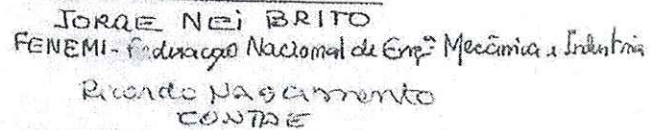 JORGE NEI BRITO
FENEMI - Federação Nacional de Engª Mecânica e Industria
Ricardo Nascimento
CONTAE